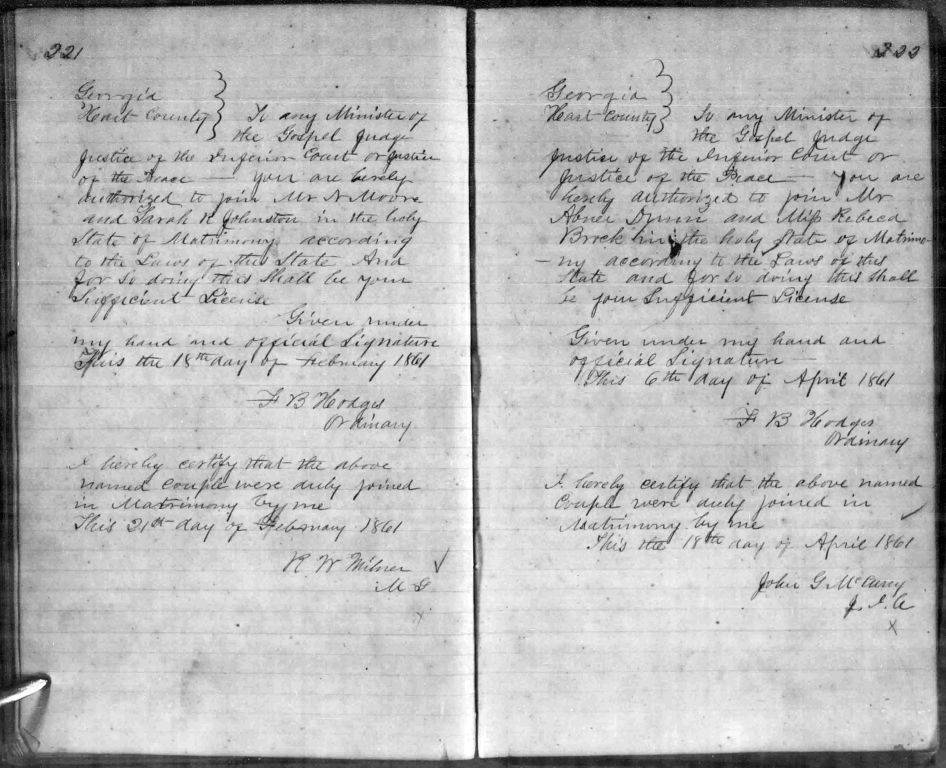 221
Georgia
Hart County } To any Minister of
the Gospel Judge
Justice of the Inferior Court or Justice
of the Peace — you are hereby
authorized to join Mr N Moore
and Sarah R Johnston in the holy
State of Matrimony according
to the Laws of this State And
for So doing this Shall be your
Sufficient License
Given under
my hand and official Signature
This the 18th day of February 1861
F B Hodges
Ordinary
I hereby certify that the above
named Couple were duly joined
in Matrimony by me
This 21st day of February 1861
R W Milner
M G
x
222
Georgia
Hart County } To any Minister of
the Gospel Judge
Justice of the Inferior Court or
Justice of the Peace — you are
hereby authorized to join Mr
Abner Dunn and Miss Rebeca
Brock in the holy State of Matrimo-
-ny according to the Laws of this
State and for So doing this Shall
be your Sufficient License
Given under my hand and
official Signature —
This 6th day of April 1861
F B Hodges
Ordinary
I hereby certify that the above named
Couple were duly joined in
Matrimony by me
This the 18th day of April 1861
John G McCurry
J. I. C
x